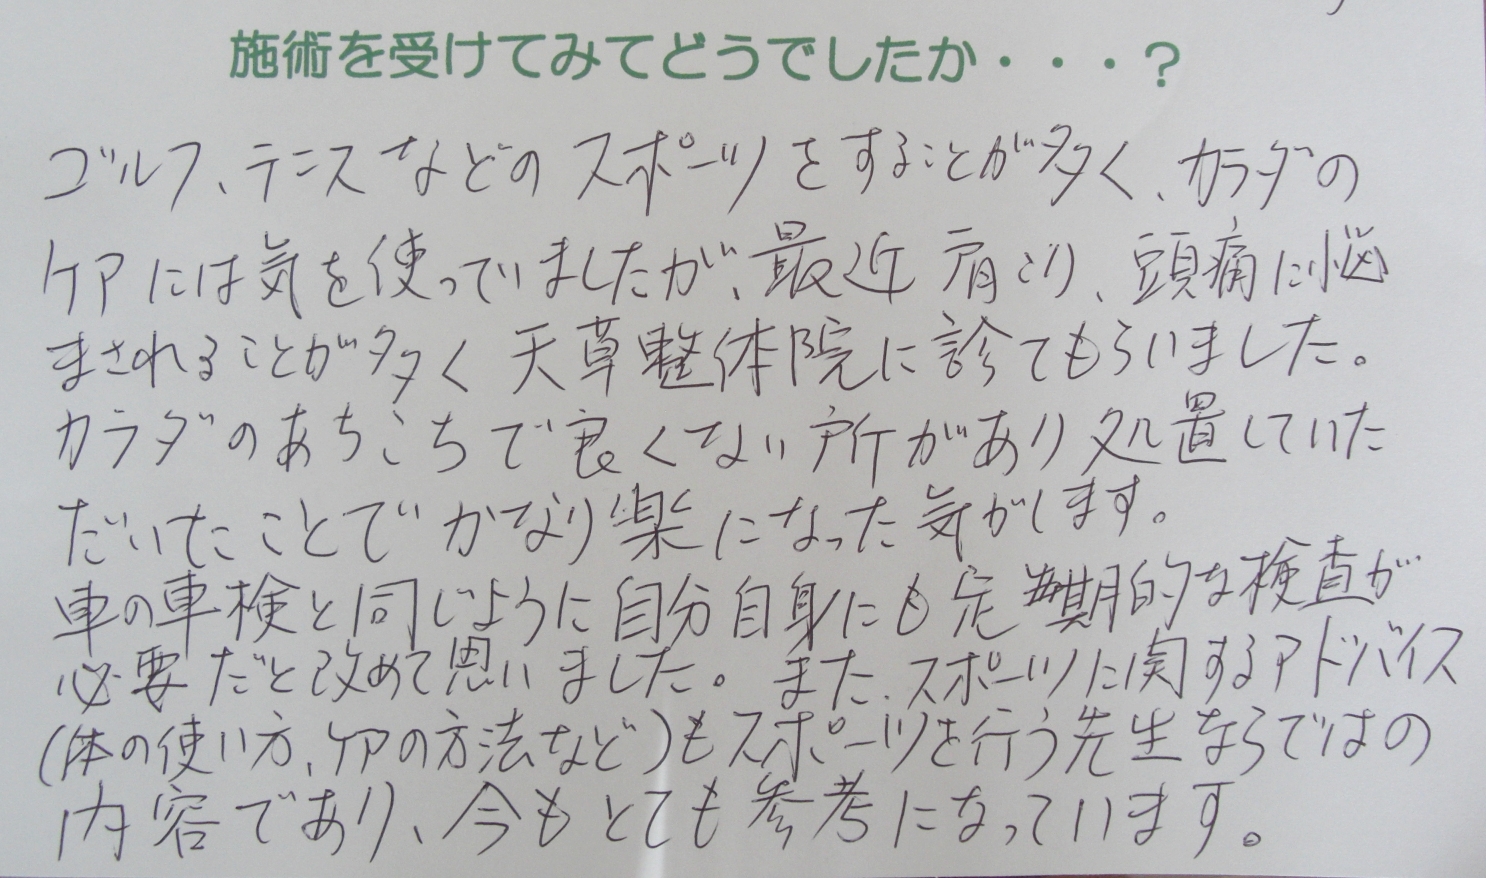 施術を受けてみてどうでしたか・・・？
ゴルフ、テニスなどのスポーツをすることが多く、カラダの
ケアには気を使っていましたが、最近肩こり、頭痛に悩
まされることが多く天草整体院に診てもらいました。
カラダのあちこちで良くない所があり処置していた
だいたことでかなり楽になった気がします。
車の車検と同じように自分自身にも定期的な検査が
必要だと改めて思いました。また、スポーツに関するアドバイス
(体の使い方、ケアの方法など)もスポーツを行う先生ならではの
内容であり、今もとても参考になっています。